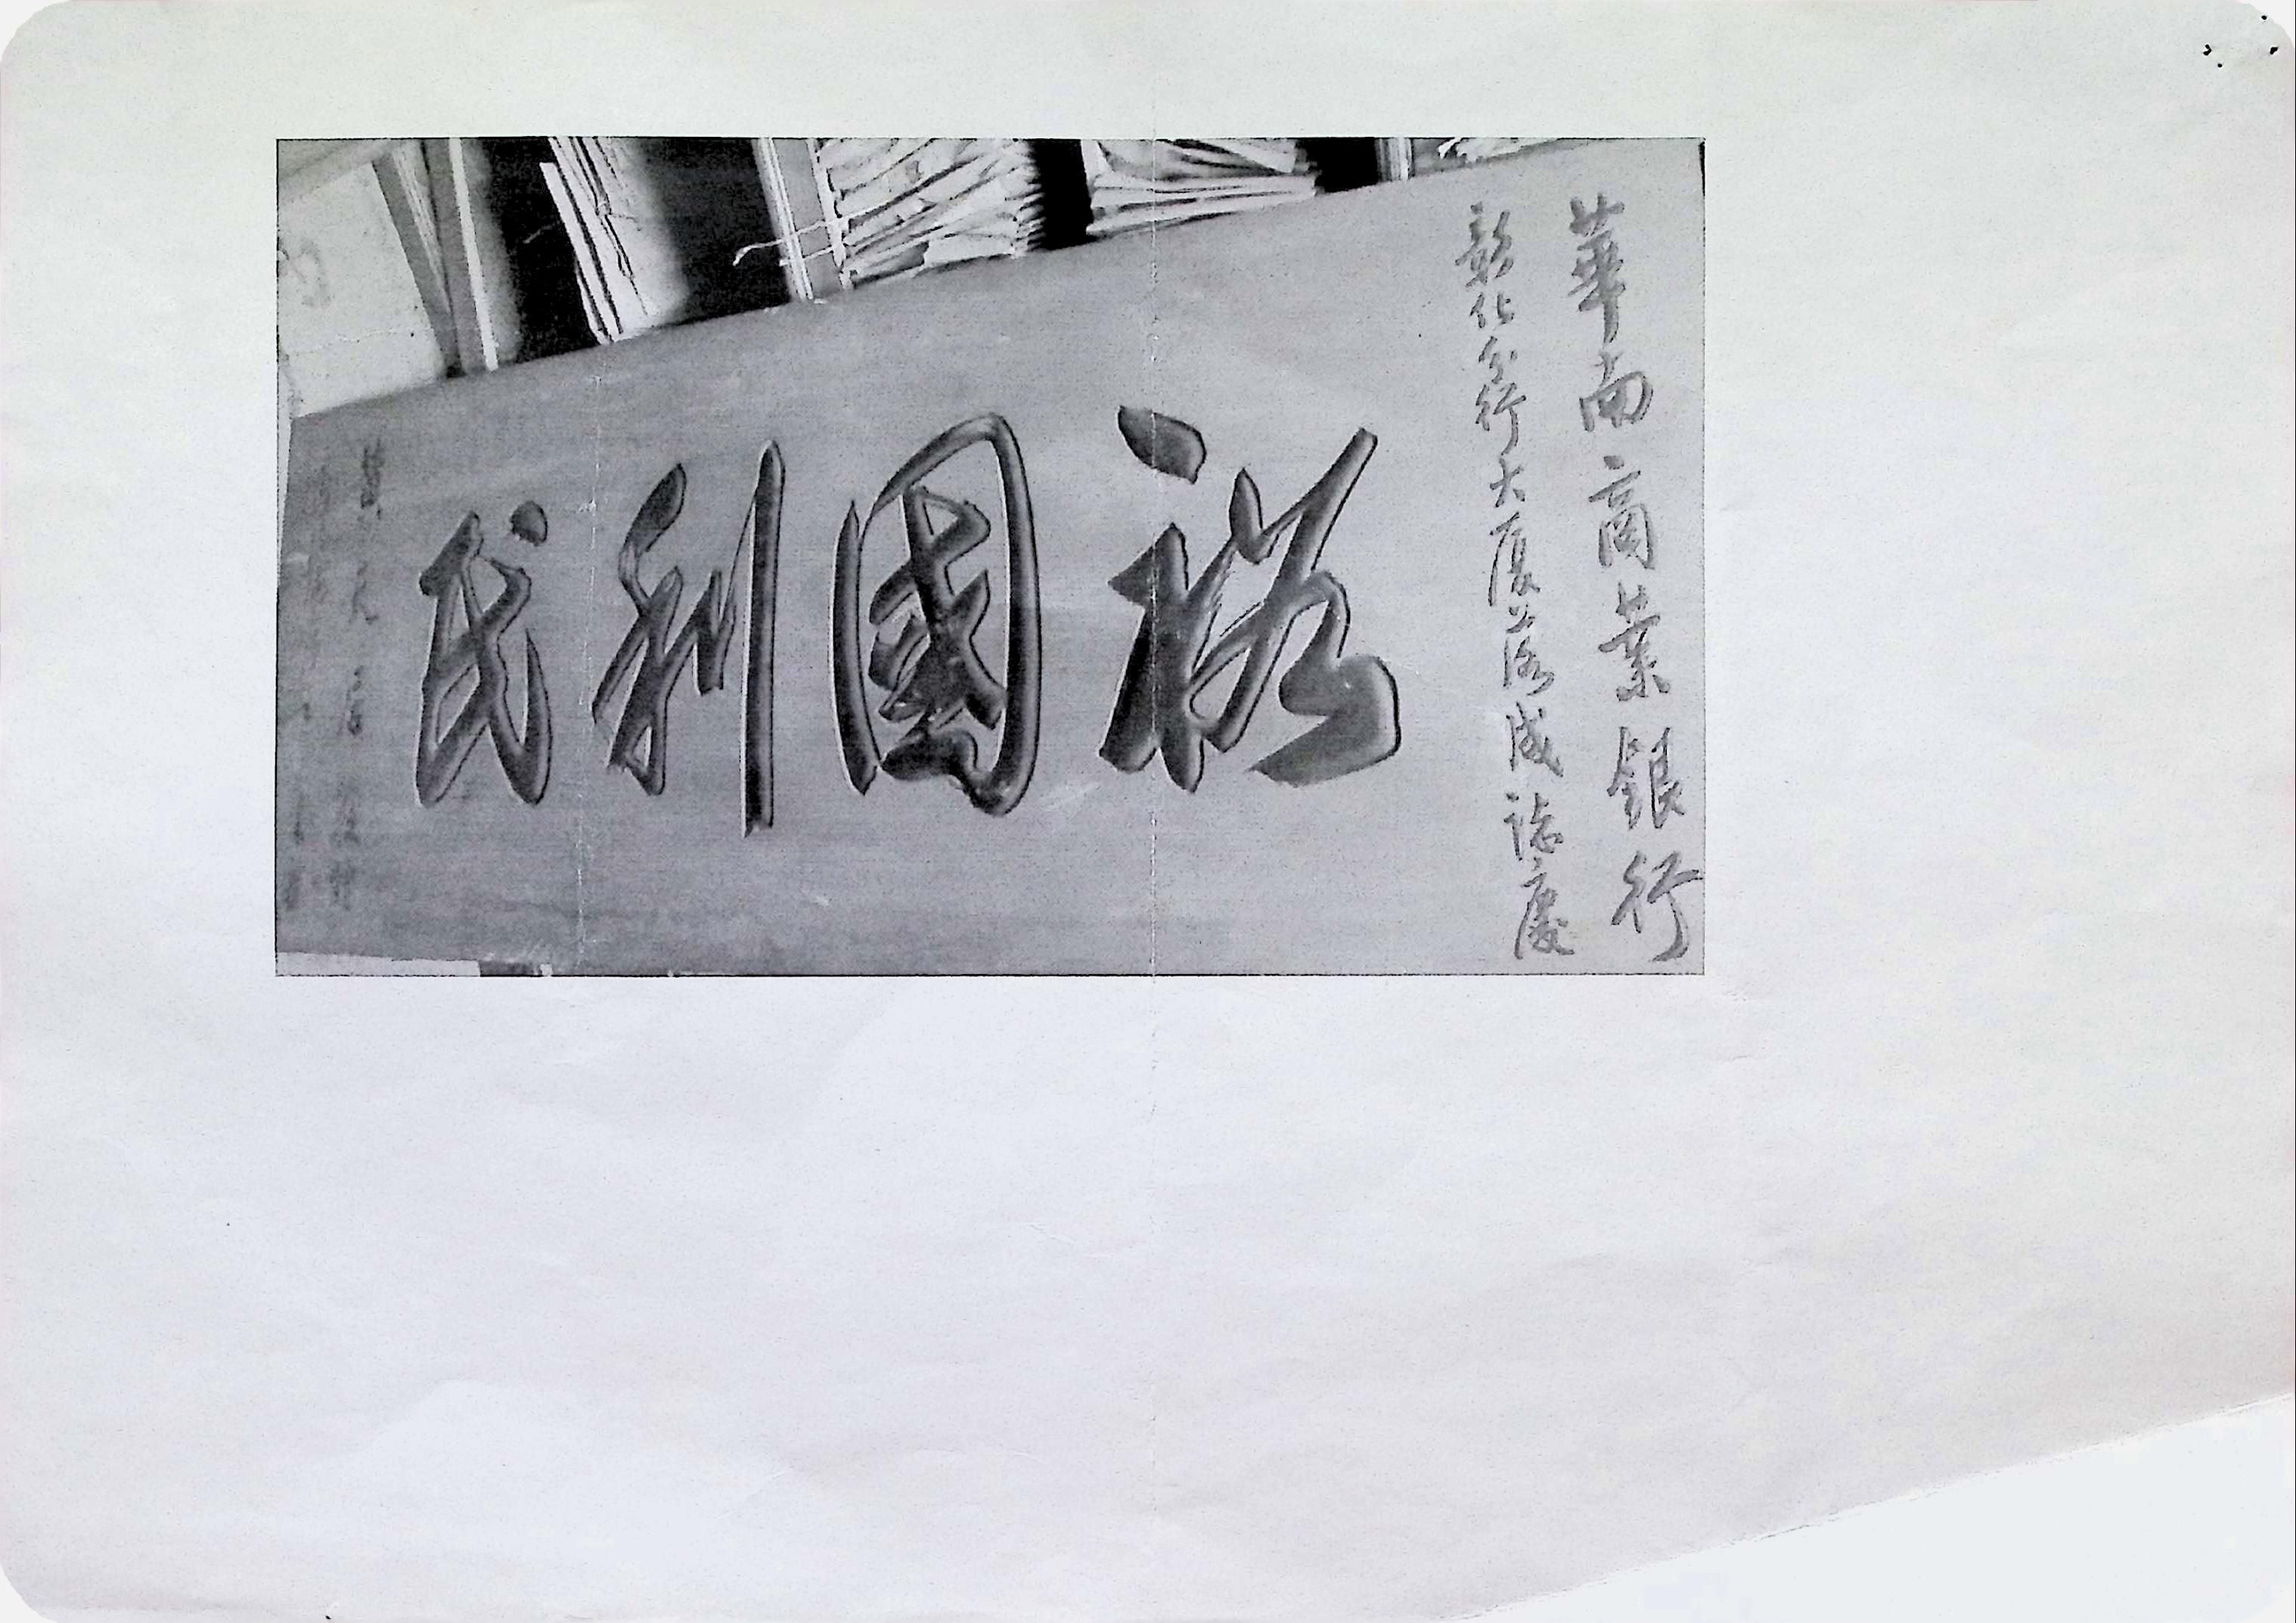 華南商業銀行
彰化分行大廈落成誌慶
裕國利民